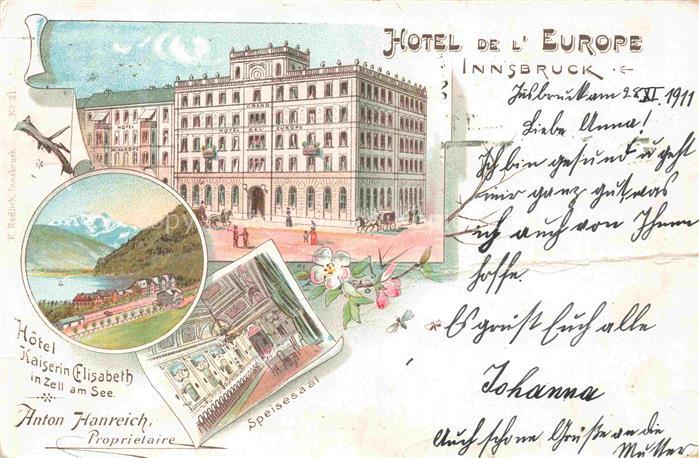 HOTEL DE L' EUROPE
INNSBRUCK
Insbruck am 28 XI 1911
Liebe Anna!
Ich bin gesund u geht
mir ganz gut, was
ich auch von Ihnen
hoffe.
Es grüst Euch alle
Johanna
Auch schöne Grüße an die
Mutter
GRAND
HOTEL DE L' EUROPE
HOTEL
EUROPE
K. Redlich, Innsbruck. No 21.
Hôtel
Kaiserin Elisabeth
in Zell am See.
Anton Hanreich,
Proprietaire
Speisesaal